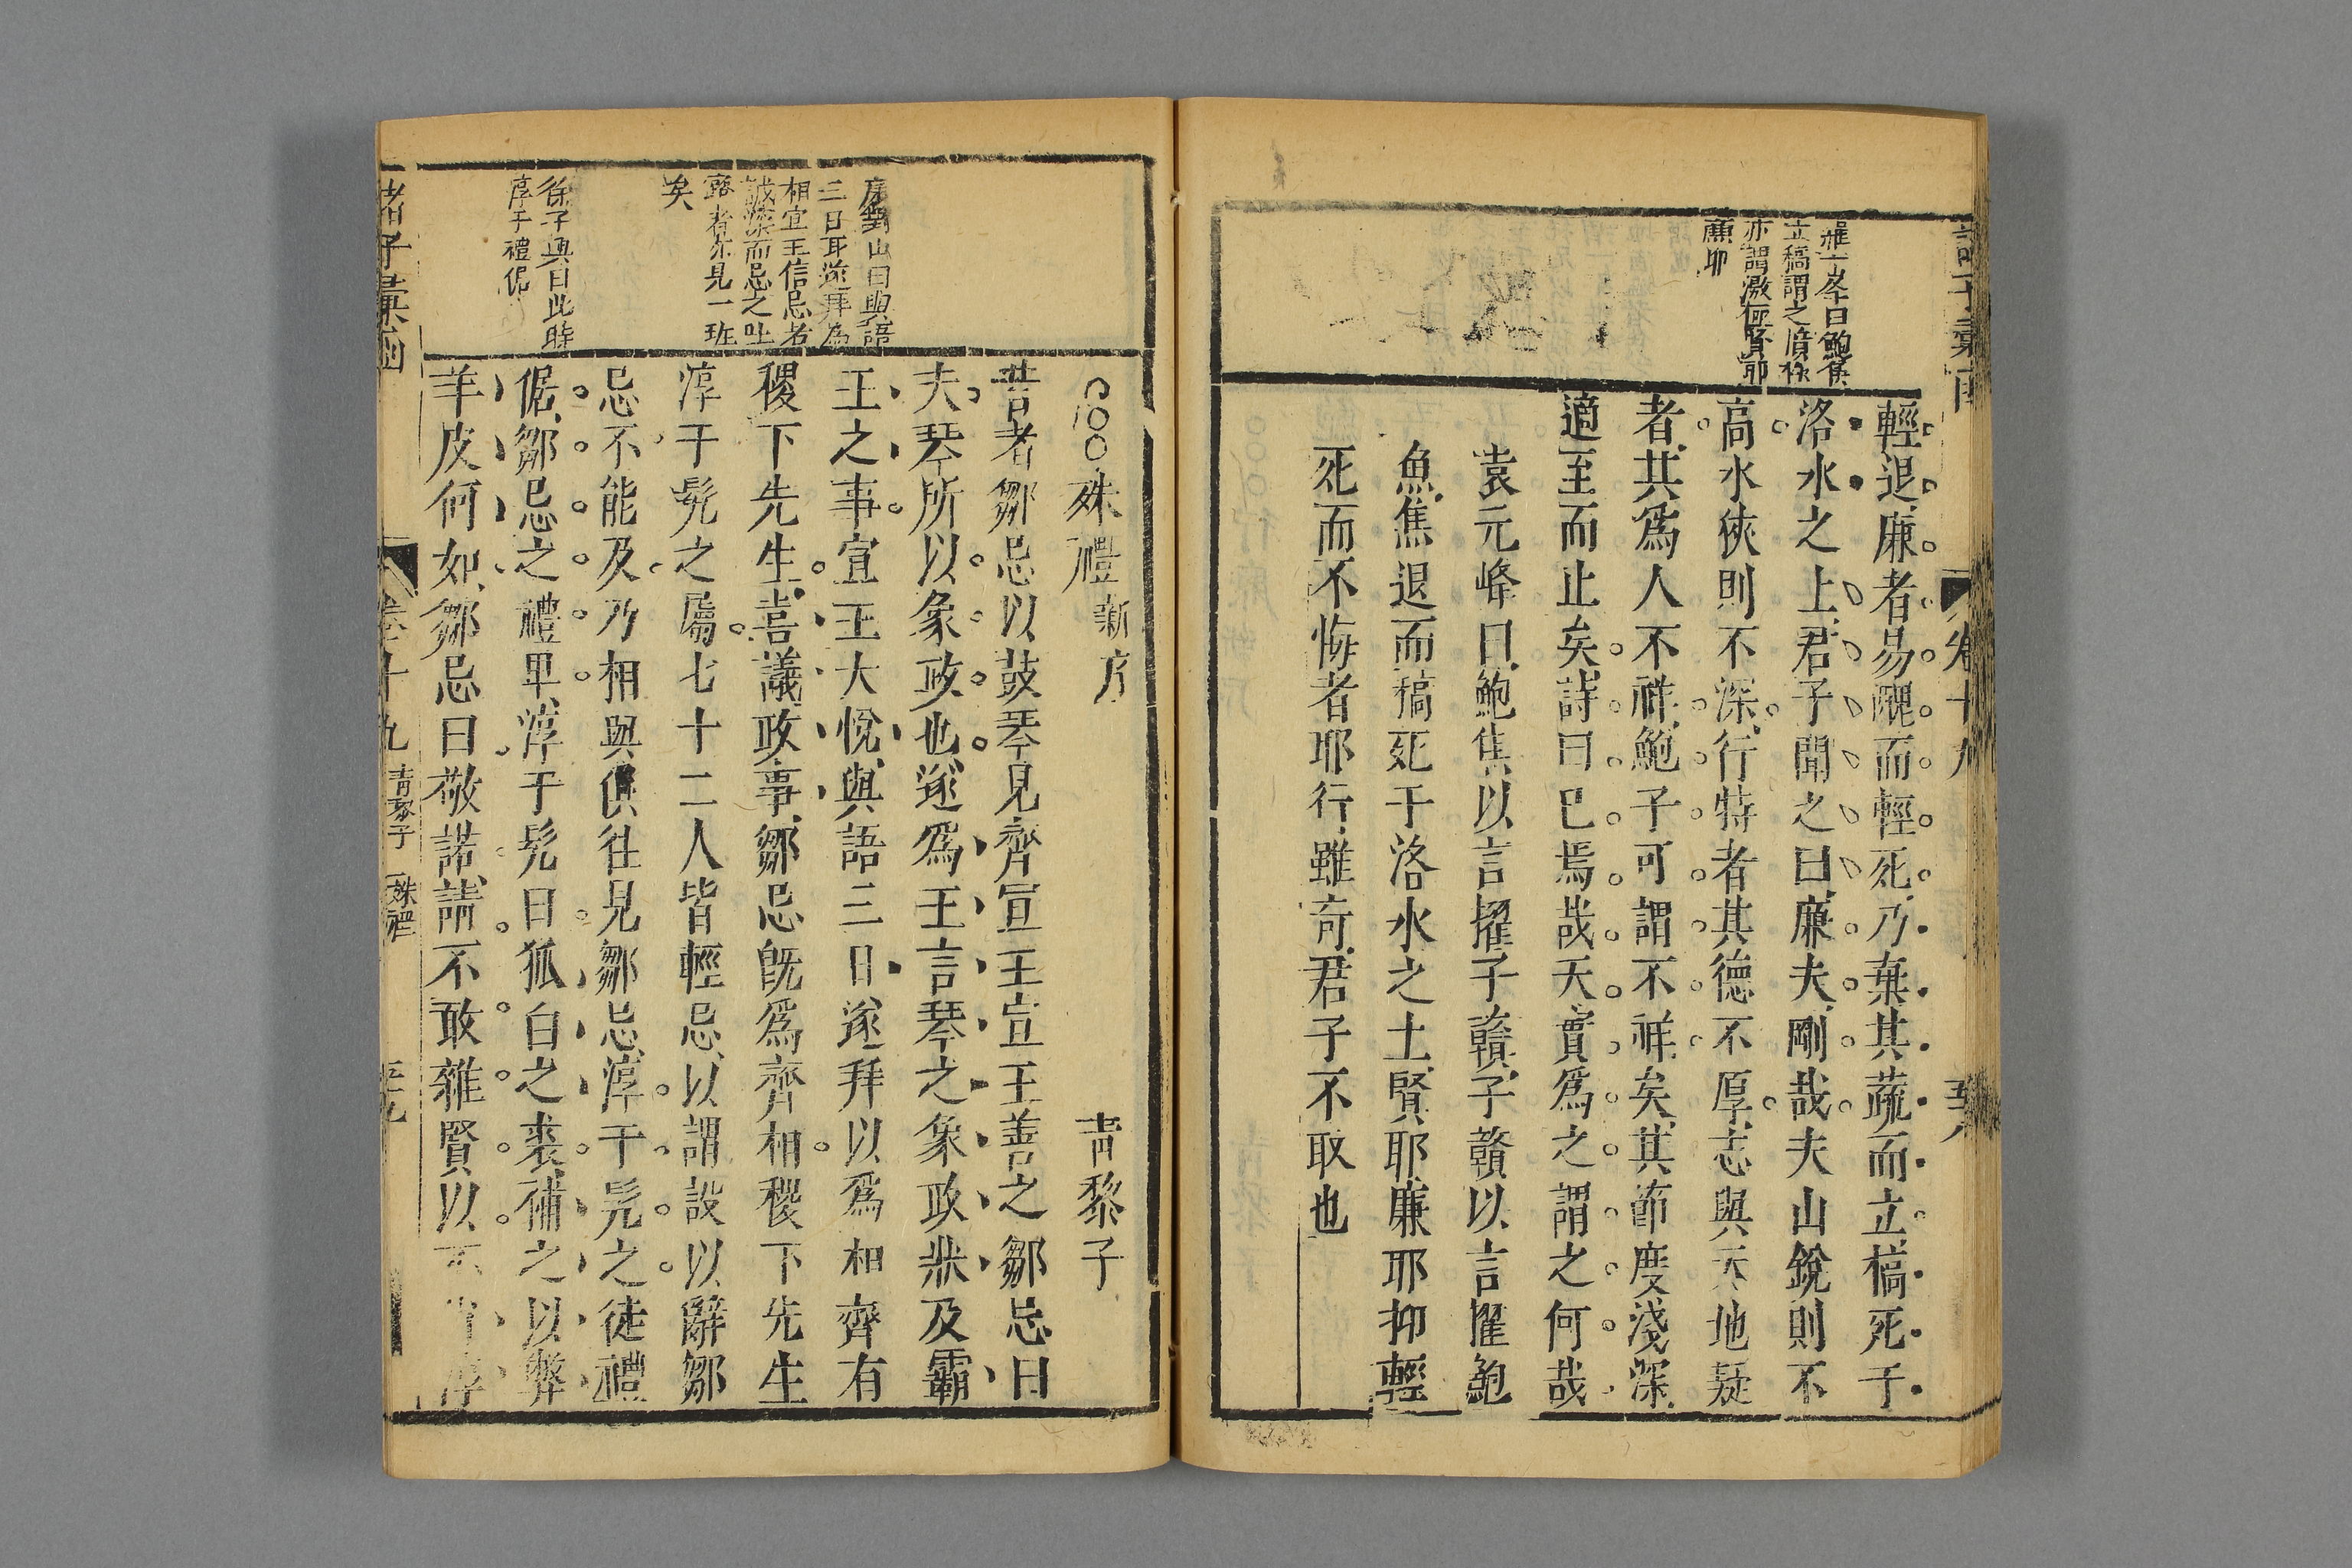 諸子彙函
卷十九
五十八
崔百
曰鮑焦
立槁謂之清祿
亦謂激何賢耶
廉耶
輕退廉者易醜而輕死乃棄其蔬而立槁死于
洛水之上君子聞之曰廉夫剛哉夫山銳則不
高水狹則不深行特者其德不厚志與天地疑
者其爲人不祥鮑子可謂不祥矣其節度淺深
適至而止矣詩曰已焉哉天實爲之謂之何哉
袁元峰曰鮑焦以言擢子贛子贛以言擢鮑
魚焦退而槁死于洛水之土賢耶廉耶抑輕
死而不悔者耶行雖奇君子不取也
殊禮 新序 青黎子
昔者鄒忌以鼓琴見齊宣王宣王善之鄒忌曰
夫琴所以象政也遂爲王言琴之象政狀及霸
王之事宣王大悅與語三日遂拜以爲相齊有
稷下先生喜議政事鄒忌既爲齊相稷下先生
淳于髡之屬七十二人皆輕忌以謂設以辭鄒
忌不能及乃相與俱往見鄒忌淳于髡之徒禮
倨鄒忌之禮卑淳于髡曰狐白之裘補之以弊
羊皮何如鄒忌曰敬諾請不敢雜賢以不肖淳
唐荊山曰與語
三日耳遂拜為
相宣王信忌者
誠深而忌之吐
露者亦見一班
矣
徐子與曰此時
淳于禮倨
諸子彙函
卷十九 青黎子 殊禮 五十九